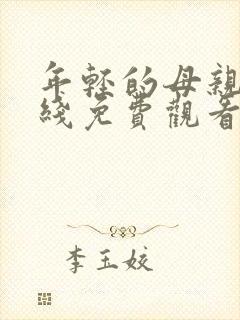 年輕的母親
綫免費觀看
李玉姣